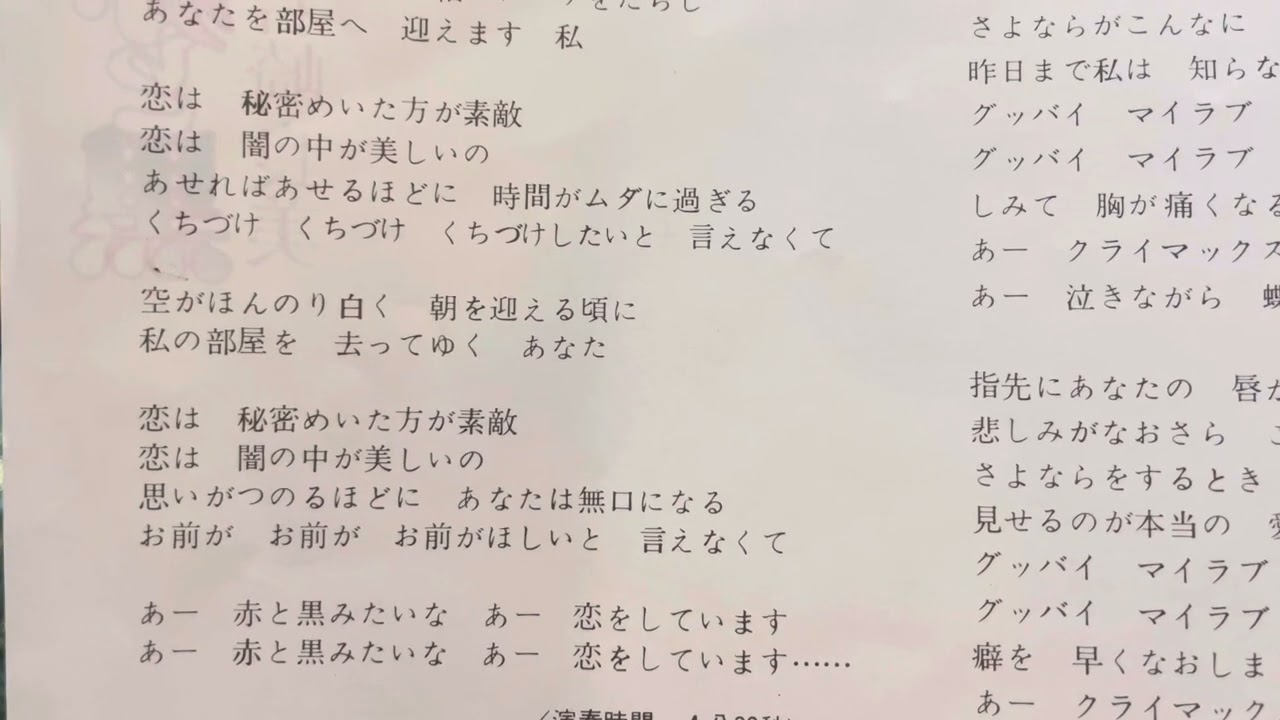 をたらし
あなたを部屋へ　迎えます　私
恋は　秘密めいた方が素敵
恋は　闇の中が美しいの
あせればあせるほどに　時間がムダに過ぎる
くちづけ　くちづけ　くちづけしたいと　言えなくて
空がほんのり白く　朝を迎える頃に
私の部屋を　去ってゆく　あなた
恋は　秘密めいた方が素敵
恋は　闇の中が美しいの
思いがつのるほどに　あなたは無口になる
お前が　お前が　お前がほしいと　言えなくて
あー　赤と黒みたいな　あー　恋をしています
あー　赤と黒みたいな　あー　恋をしています……
演奏時間
さよならがこんなに
昨日まで私は　知らな
グッバイ　マイラブ
グッバイ　マイラブ
しみて　胸が痛くなる
あー　クライマックス
あー　泣きながら　蝶
指先にあなたの　唇が
悲しみがなおさら
さよならをするとき
見せるのが本当の
グッバイ　マイラブ
グッバイ　マイラブ
癖を　早くなおしま
あー　クライマック